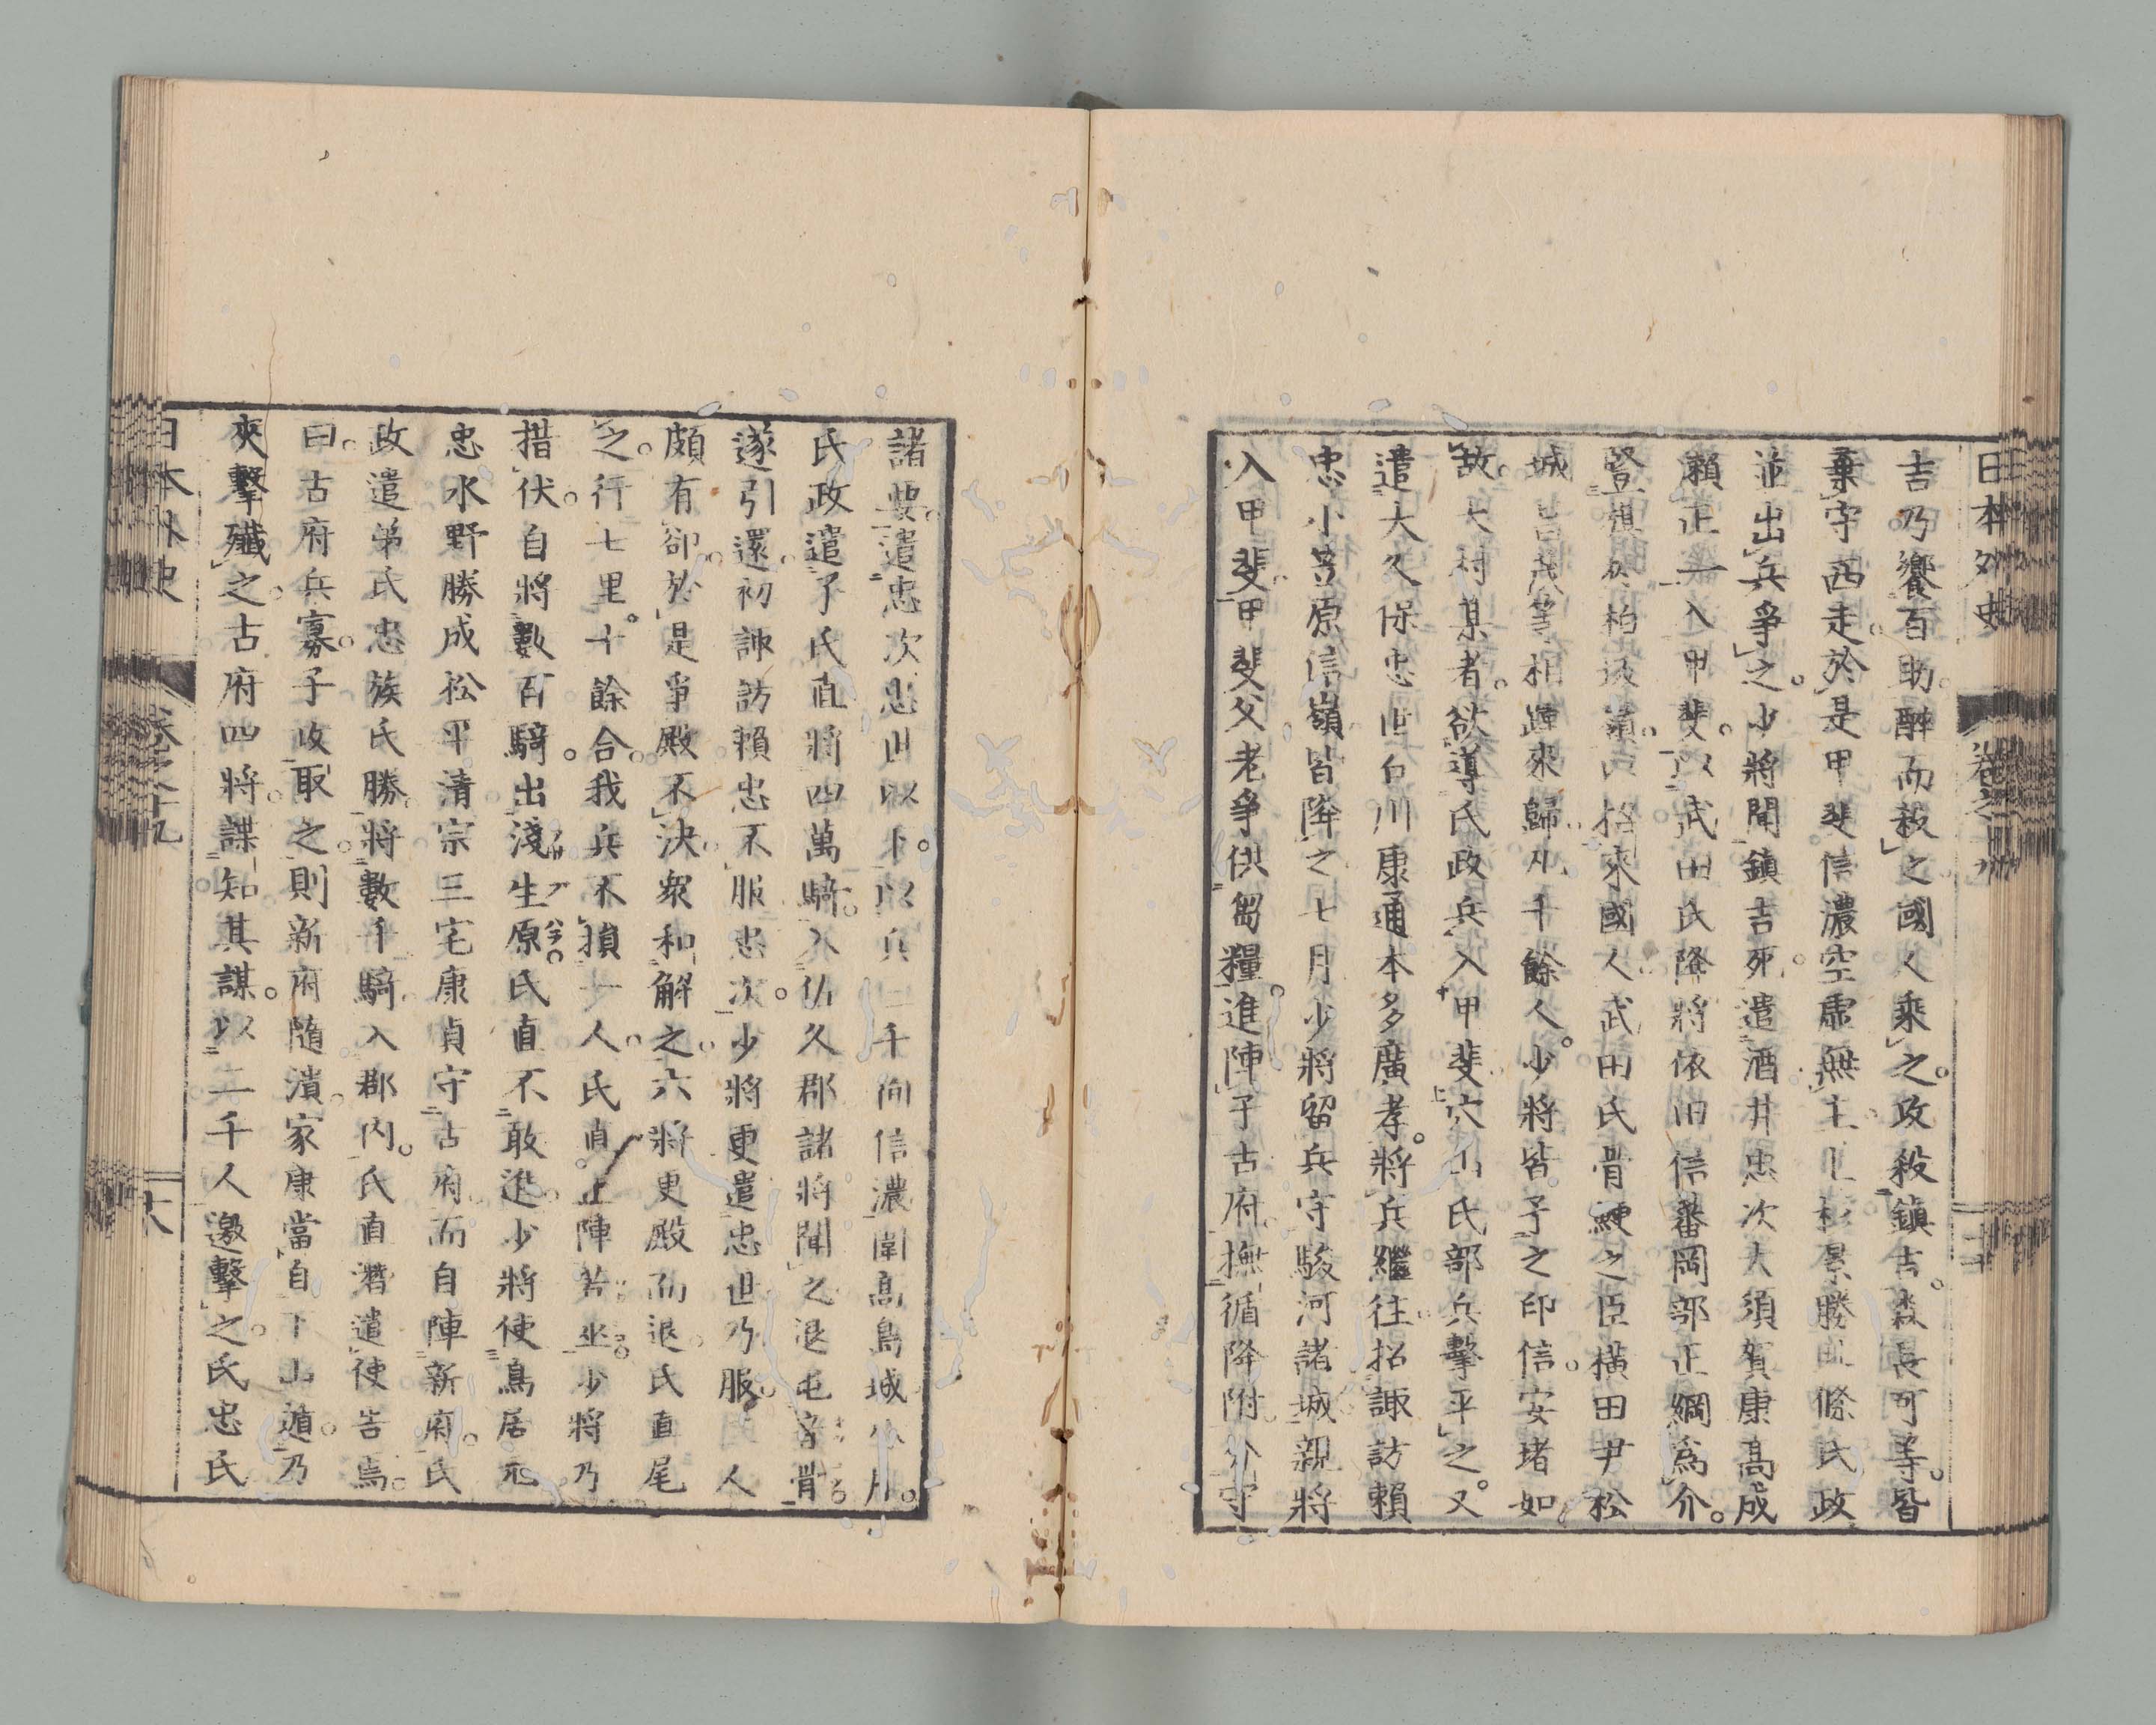 日本外史 卷之十九
吉乃饗百助。醉而殺之國人乘之。攻殺鎮吉。森長可等。皆
棄守西走。於是甲斐信濃空虛無主上杉景勝北條氏政
並出兵爭之。少將聞鎮吉死。遣酒井忠次大須賀康高成
瀨正一入甲斐。以武田氏降將依田信蕃岡部正綱為介。
登旗於柏坂嶺。招來國人武田氏骨鯁之臣橫田尹松
城昌茂等相踵來歸凡千餘人。少將皆予之印信。安堵如
故。大村某者。欲導氏政兵入甲斐穴山氏部兵擊平之。又
遣大久保忠世石川康通本多廣孝。將兵繼往。招諏訪賴
忠小笠原信嶺皆降之七月少將留兵守駿河諸城親將
入甲斐。甲斐父老爭供芻糧。進陣于古府。撫循降附分守
諸要。遣忠次忠世以下。以兵三千徇信濃圍高島城
氏政遣子氏直將四萬騎。入佐久郡諸將聞之退屯
遂引還。初諏訪賴忠不服忠次。少將更遣忠世乃服。人
頗有卻。於是爭殿不決。眾和解之。六將更殿而退。氏直尾
之。行七里。十餘合。我兵不損一人。氏直止陣若坐。少將乃
措伏。自將數百騎。出淺生原。氏直不敢進。少將使鳥居元
忠水野勝成松平清宗三宅康貞守古府。而自陣新府。氏
政遣弟氏忠族氏勝。將數千騎。入郡內。氏直潛遣使告焉。
曰。古府兵寡。子政取之。則新府隨潰。家康當自下山遁。乃
夾擊殲之。古府四將。諜知其謀。以二千人邀擊之。氏忠氏
日本外史 卷之十九